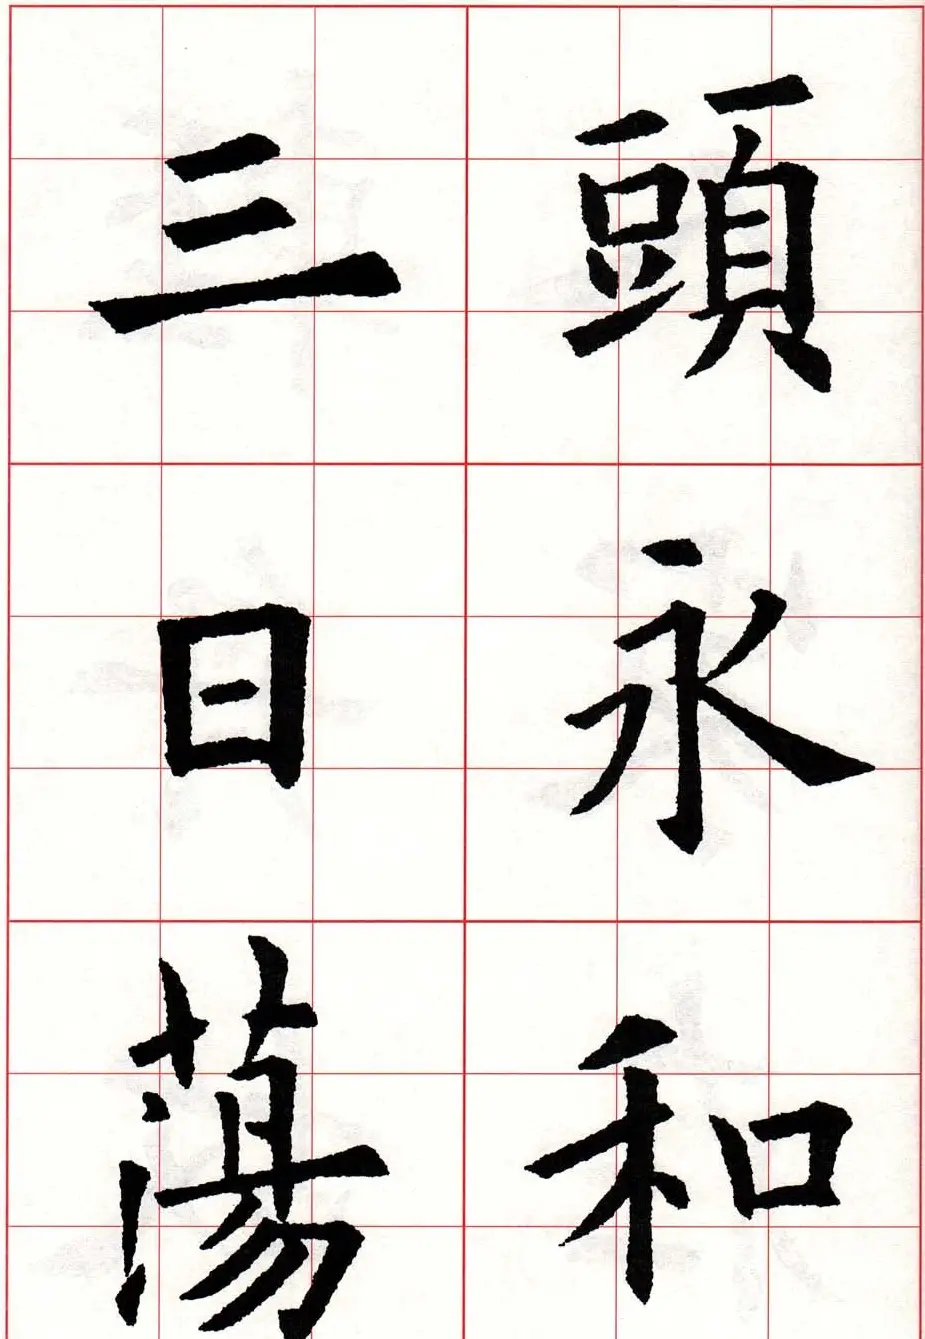 頭永和
三日蕩